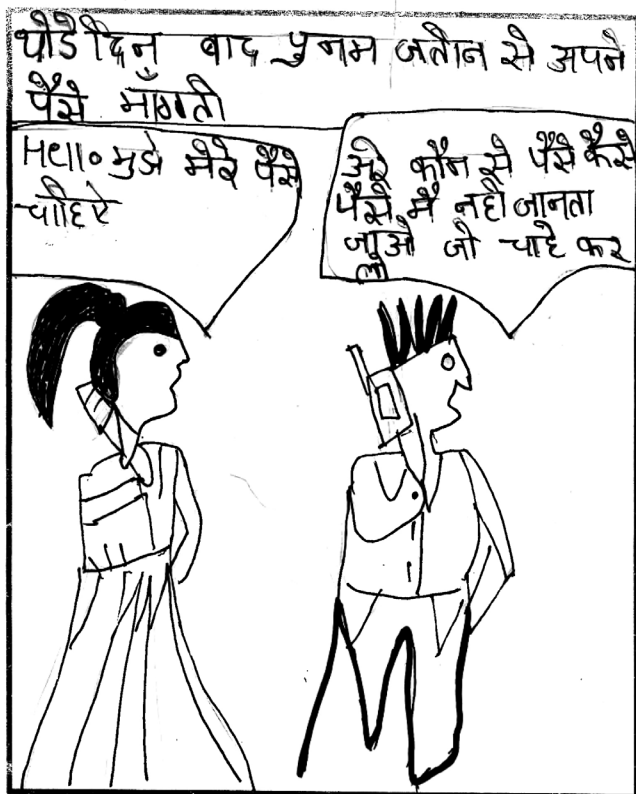 थोडे दिन बाद पुनम जतीन से अपने
पैसे माँगती
Hello मुझे मेरे पैसे
चाहिए
अरे कौन से पैसे कैसे
पैसे मै नही जानता
जाओ जो चाहे कर
लो